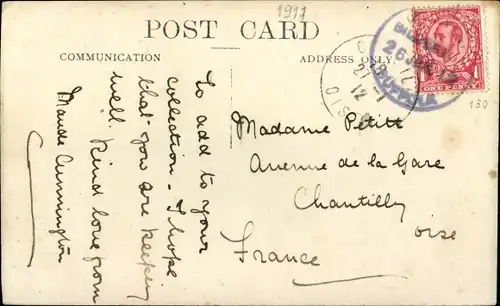 1911
POST CARD
COMMUNICATION
ADDRESS ONLY
To add to your
collection - I hope
that you are keeping
well. Kind love from
Maude Cunnington
Madame Petitt
Avenue de la Gare
Chantilly
oise
France
ONE PENNY
130
26
12
OISE